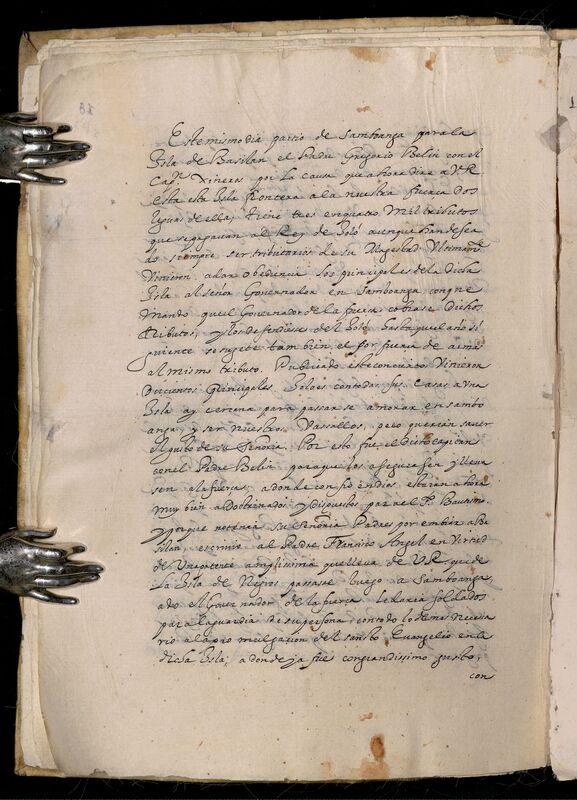 Este mismo dia partio de Samboanga para la
Isla de Basilan el Padre Gregorio Belin con el
Capn. Xineros por la causa que ahora dire a V.R.
Esta esta Isla frontera a la nuestra fuerça dos
leguas de ella; tiene tres o quatro Mil tributos
que se pagavan al Rey de Joló aunque han desea
do siempre ser tributarios de su Magestad Ultimamte
Vinieron a dar Obediencia los principales de la dicha
Isla al señor Governador en Samboanga con que
Mando que el Governador de la fuerça cobrase dichos
tributos, y los defendiese del Joló hasta que el año si
guiente sesugete tambien el por fuerça de armas
al mismo tributo. Publicado este concierto Vinieron
Ducientos Principales Joloes con todas sus Casas a una
Isla ay cercana para passarse a morar en Sambo
anga, y ser nuestros Vassallos, pero querian saver
el gusto de su Señoria. Por esto fue el dicho capitan
con el Padre Belin paraque los asegurasen y lleva
sen a la fuerça, a donde confio en dios estaran ahora
muy bien adotrinados y dispuestos para el Sto. Bautismo.
Y porque no tenia su Señoria Padres por embiar a Ba
silan, escrivio al Padre Francisco Angel en Virtud
de Una patente amplissima que lleva de V.R. que de
la Isla de Negros passase luego a Samboanga,
a do el Governador de la fuerça le daria soldados
para la guardia de su persona, con todo lo demas necesa
rio a la promulgacion del sancto Evangelio en la
dicha Isla; a donde ya fue con grandissimo gusto,
con